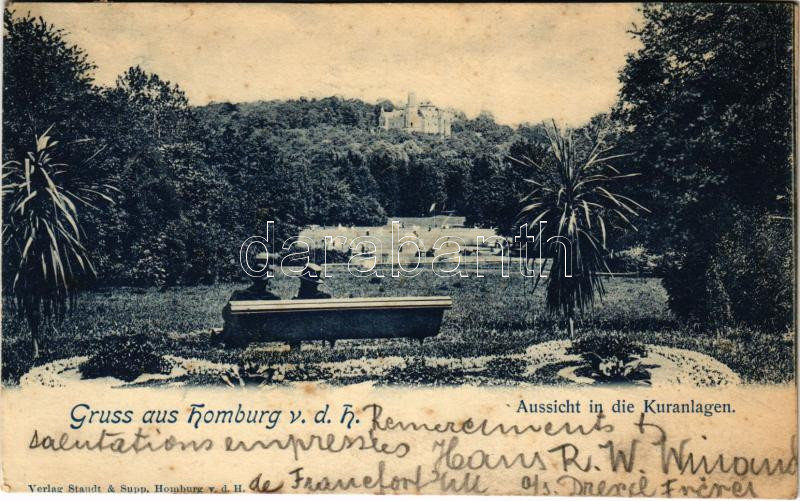 darabanth
Gruss aus Homburg v. d. H.
Aussicht in die Kuranlagen.
Remerciments &
salutations empressées
Hans R. W. Winand
de Francfort
c/s Drexel Frères
Verlag Staudt & Supp, Homburg v. d. H.